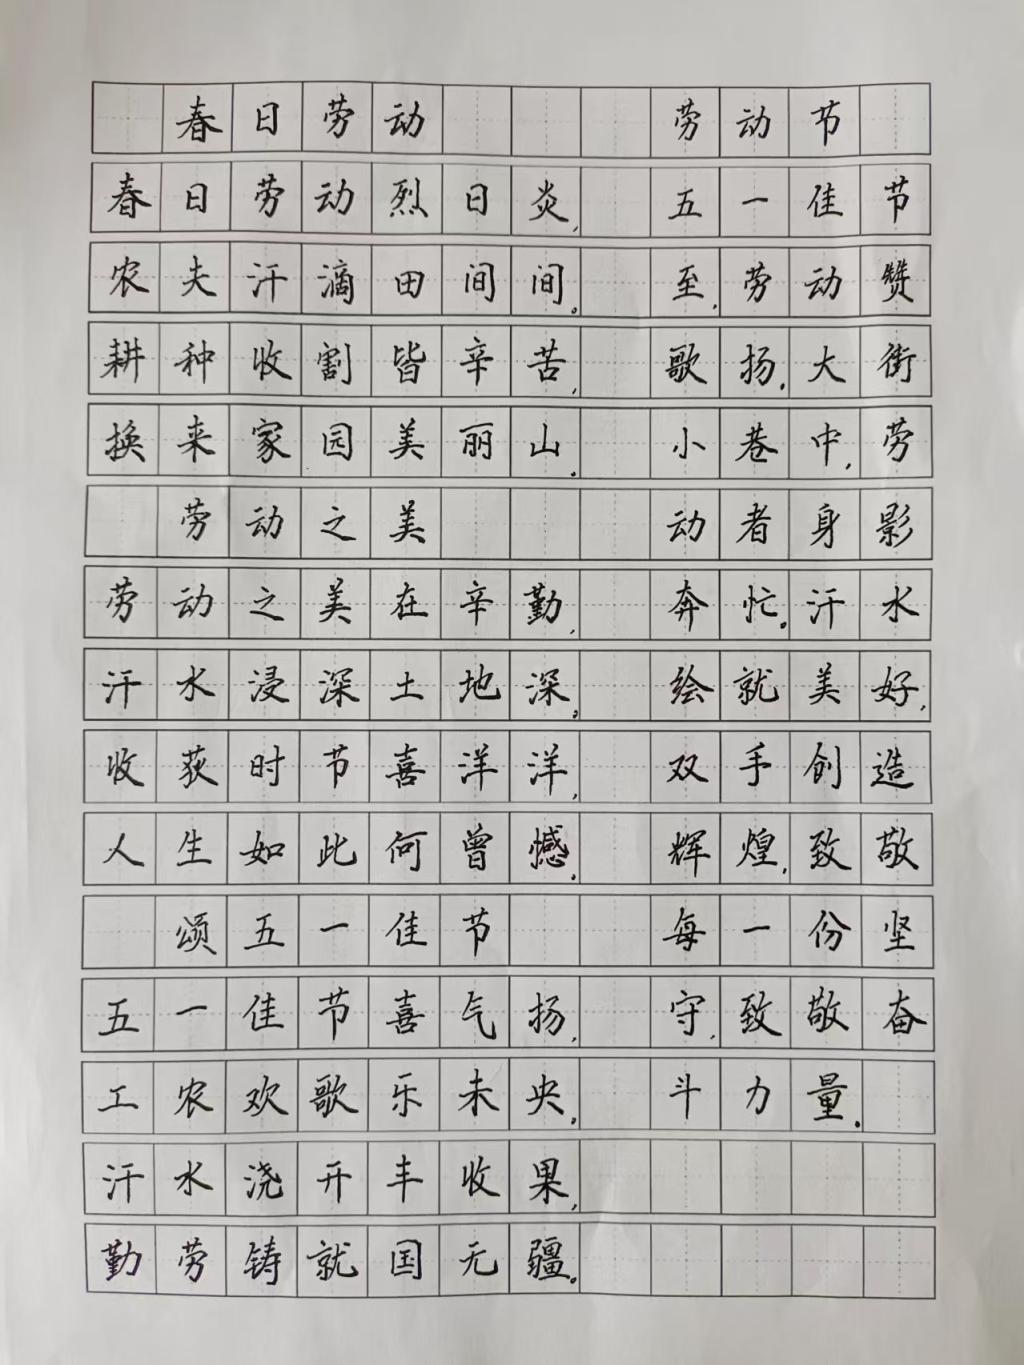 春日劳动
春日劳动烈日炎,
农夫汗滴田间间。
耕种收割皆辛苦,
换来家园美丽山。
劳动之美
劳动之美在辛勤,
汗水浸深土地深,
收获时节喜洋洋,
人生如此何曾憾。
颂五一佳节
五一佳节喜气扬,
工农欢歌乐未央,
汗水浇开丰收果,
勤劳铸就国无疆。
劳动节
五一佳节
至,劳动赞
歌扬,大街
小巷中,劳
动者身影
奔忙。汗水
绘就美好,
双手创造
辉煌,致敬
每一份坚
守,致敬奋
斗力量。